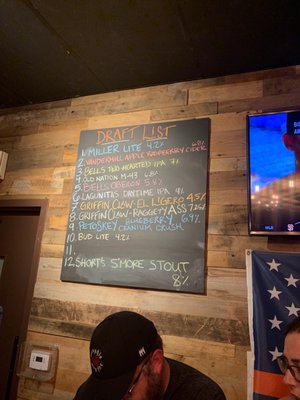 DRAFT LIST
1. MILLER LITE 4.2%
2. VANDERMILL APPLE RASPBERRY CIDER 6.8%
3. BELLS TWO-HEARTED IPA 7%
4. OLD NATION M-43 6.8%
5. BELLS OBERON 5.8%
6. LAGUNITAS DAYTIME IPA 4%
7. GRIFFIN CLAW - EL LIGERO 4.5%
8. GRIFFIN CLAW - RAGGEDY ASS 7.25%
9. PETOSKEY BLUEBERRY CRANIUM CRUSH 6.9%
10. BUD LITE 4.2%
11.
12. SHORT'S S'MORE STOUT
8%